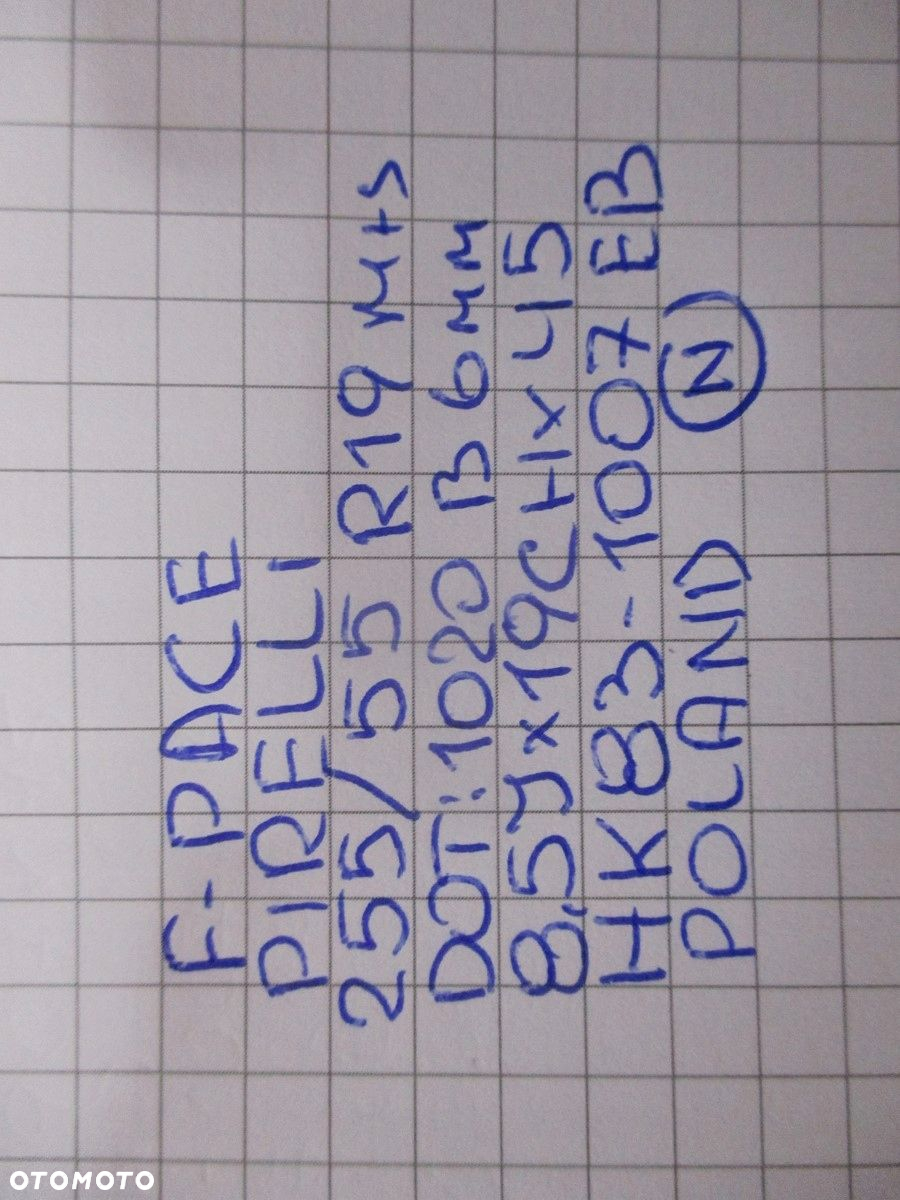 F-PACE
PIRELLI
255/55 R19 M+S
DOT:1020 B 6MM
8,5Jx19CH1x45
HK83-1007 EB
POLAND N
OTOMOTO